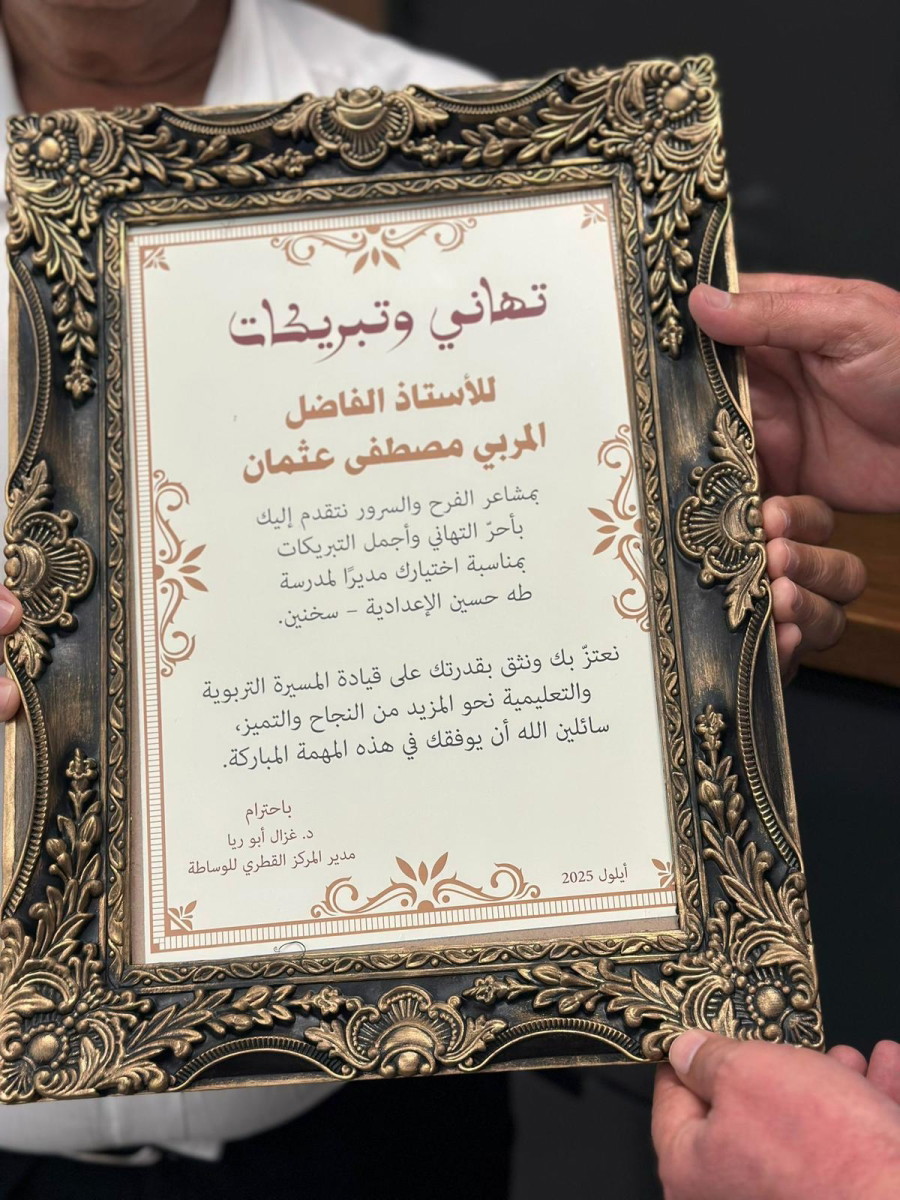 تهاني وتبريكات
للأستاذ الفاضل
المربي مصطفى عثمان
بمشاعر الفرح والسرور نتقدم إليك
بأحرّ التهاني وأجمل التبريكات
بمناسبة اختيارك مديرًا لمدرسة
طه حسين الإعدادية – سخنين.
نعتزّ بك ونثق بقدرتك على قيادة المسيرة التربوية
والتعليمية نحو المزيد من النجاح والتميز،
سائلين الله أن يوفقك في هذه المهمة المباركة.
باحترام
د. غزال أبو ريا
مدير المركز القطري للوساطة
أيلول 2025